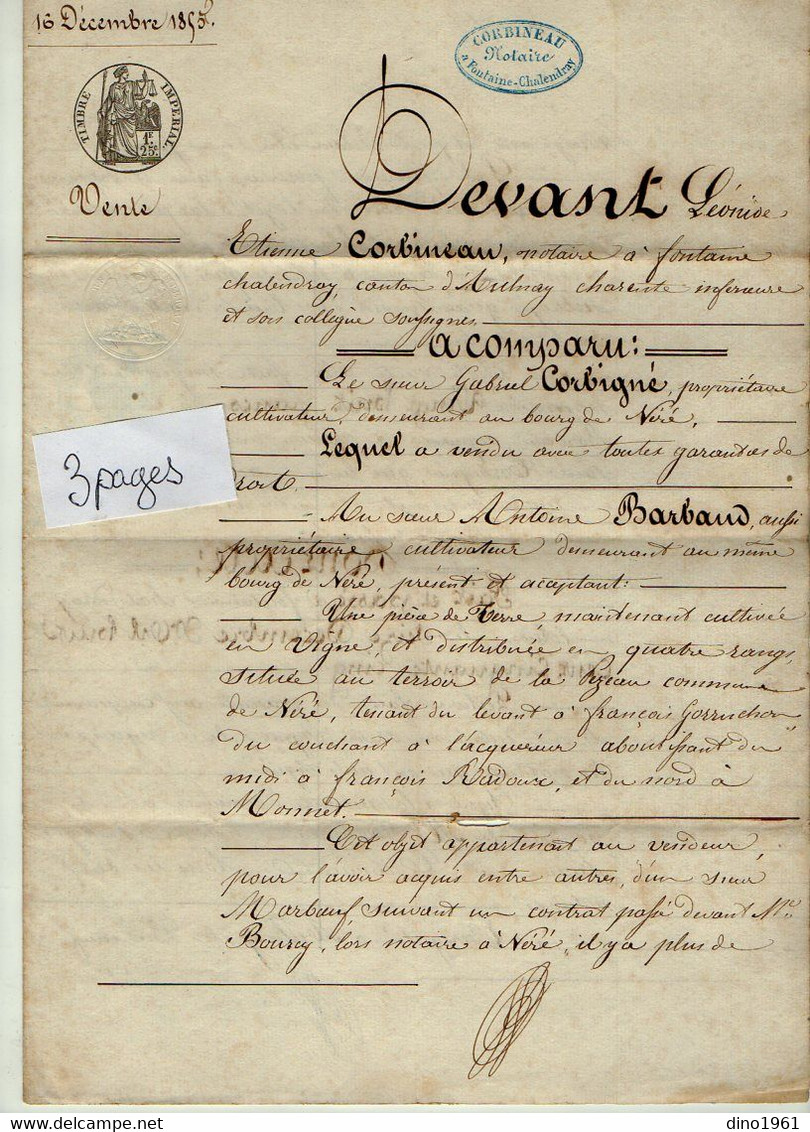 16 Décembre 1855.
CORBINEAU
Notaire
a Fontaine-Chalendray
TIMBRE IMPERIAL.
1F.
25c.
Vente
Devant Léonide
Etienne Corbineau, notaire à fontaine
chalendray, canton d'Aulnay charente inferieure
et son collègue soussignés.
a comparu:
Le sieur Gabriel Corbigné, propriétaire
cultivateur, demeurant au bourg de Néré,
Lequel a vendu avec toutes garanties de
droit.
3 pages
Au sieur Antoine Barbaud, aussi
propriétaire cultivateur demeurant au même
bourg de Néré, présent et acceptant:
Une pièce de Terre, maintenant cultivée
en vigne, et distribuée en quatre rangs,
située au terroir de la commune
de Néré, tenant du levant à françois Gorruchon
du couchant à l'acquéreur aboutissant du
midi à françois Radoux, et du nord à
Monnet.
Cet objet appartenait au vendeur,
pour l'avoir acquis entre autres, d'un sieur
Marbœuf suivant un contrat passé devant Me.
Bourcy, lors notaire à Néré, il y a plus de
dino1961